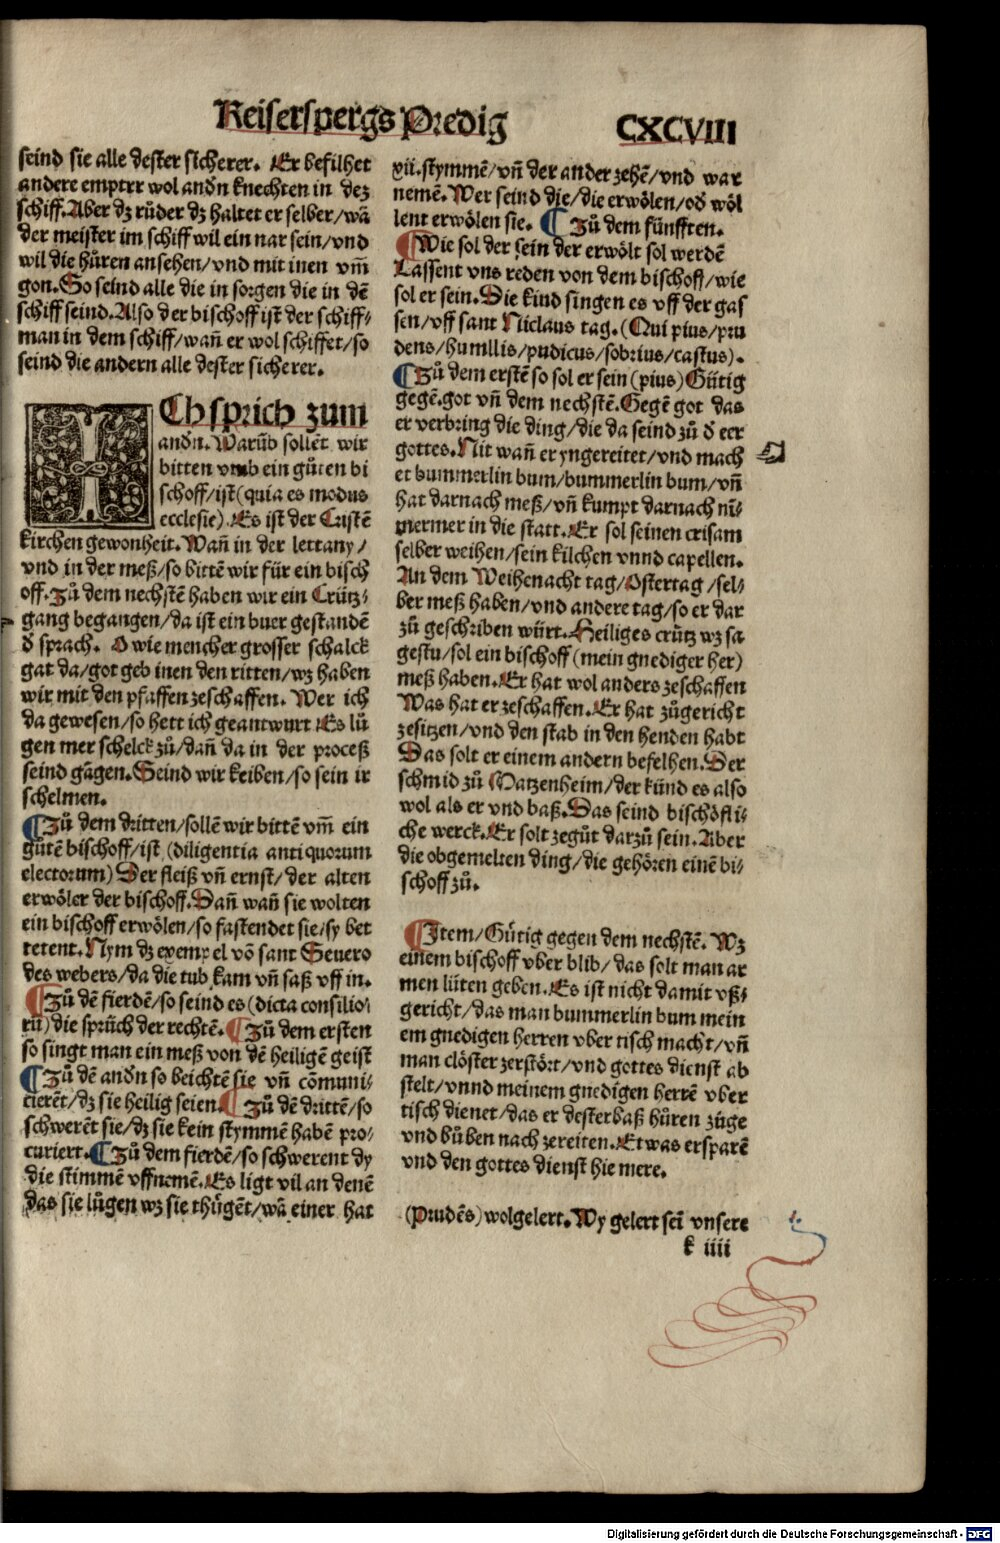 Keiserspergs Predig CXCVIII
seind sie alle dester sicherer. Er befilhet
andere emptrr wol andn̄ knechten in dez
schiff. Aber dz růder dz haltet er selber/wā
der meister im schiff wil ein nar sein/vnd
wil die hůren ansehen/vnd mit inen vm̄
gon. So seind alle die in sorgen die in dē
schiff seind. Also der bischoff ist der schiff⸗
man in dem schiff/wañ er wol schiffet/so
seind die andern alle dester sicherer.
ICh sprich zum
andn̄. Warūb sollēt wir
bitten vmb ein gůten bi
schoff/ist (quia es modus
ecclesie). Es ist der Cristē
kirchen gewonheit. Wañ in der lettany/
vnd in der meß/so bittē wir für ein bisch
off. Zů dem nechstē haben wir ein Crütz⸗
gang begangen/da ist ein buer gestandē
d̄ sprach. O wie mencher grosser schalck
gat da/got geb inen den ritten/wz haben
wir mit den pfaffen zeschaffen. Wer ich
da gewesen/so hett ich geantwurt Es lů
gen mer schelck zů/dañ da in der proceß
seind gāgen. Seind wir keiben/so sein ir
schelmen.
¶ Zů dem dritten/sollē wir bittē vm̄ ein
gůtē bischoff/ist (diligentia antiquorum
electorum) Der fleiß vñ ernst/der alten
erwöler der bischoff. Dañ wañ sie wolten
ein bischoff erwölen/so fastendet sie/sy bet
tetent. Nym dz exempel vō sant Seuero
des webers/da die tub kam vñ saß vff in.
¶ Zů dē fierdē/so seind es (dicta consilio⸗
rū) die sprüch der rechtē. ¶ Zů dem ersten
so singt man ein meß von dē heiligē geist
¶ Zů dē andn̄ so beichtē sie vñ cōmuni⸗
cierēt/dz sie heilig seien. ¶ Zů dē drittē/so
schwerēt sie/dz sie kein stymmē habē pro⸗
curiert. ¶ Zů dem fierdē/so schwerent dy
die stimmē vffnemē. Es ligt vil an denē
das sie lůgen wz sie thůgēt/wā einer hat
xii. stymmē/vñ der ander zehē/vnd war
nemē. Wer seind die/die erwölen/od̄ wöl
lent erwölen sie. ¶ Zů dem fünfften.
¶ Wie sol der sein der erwölt sol werdē
Lassent vns reden von dem bischoff/wie
sol er sein. Die kind singen es vff der gas
sen/vff sant Niclaus tag. (Qui pius/pru
dens/humllis/pudicus/sobrius/castus).
¶ Zů dem erstē so sol er sein (pius) Gütig
gegē. got vñ dem nechstē. Gegē got das
er verbring die ding/die da seind zů d̄ eer
gottes. Nit wañ er yngereitet/vnd mach
et bummerlin bum/bummerlin bum/vñ
hat darnach meß/vñ kumpt darnach nī⸗
mermer in die statt. Er sol seinen crisam
selber weihen/sein kilchen vnnd capellen.
An dem Weihenacht tag/Ostertag/sel⸗
ber meß haben/vnd andere tag/so er dar
zů geschriben würt. Heiliges crütz wz sa
gestu/sol ein bischoff (mein gnediger her)
meß haben. Er hat wol anders zeschaffen
Was hat er zeschaffen. Er hat zůgericht
zesitzen/vnd den stab in den henden habt
Das solt er einem andern befelhen. Der
schmid zů Matzenheim/der künd es also
wol als er vnd baß. Das seind bischöfli⸗
che werck. Er solt zegůt darzů sein. Aber
die obgemelten ding/die gehören einē bi⸗
schoff zů.
¶ Item/Gütig gegen dem nechstē. Wz
einem bischoff vber blib/das solt man ar
men lüten geben. Es ist nicht damit vß⸗
gericht/das man bummerlin bum mein
em gnedigen herren vber tisch macht/vñ
man clöster zerstört/vnd gottes dienst ab
stelt/vnnd meinem gnedigen herrē vber
tisch dienet/das er desterbaß hůren züge
vnd bůben nach zereiten. Etwas ersparē
vnd den gottes dienst hie mere.
(Prudēs) wolgelert. Wy gelert sei vnsere
k iiii
Digitalisierung gefördert durch die Deutsche Forschungsgemeinschaft - DFG